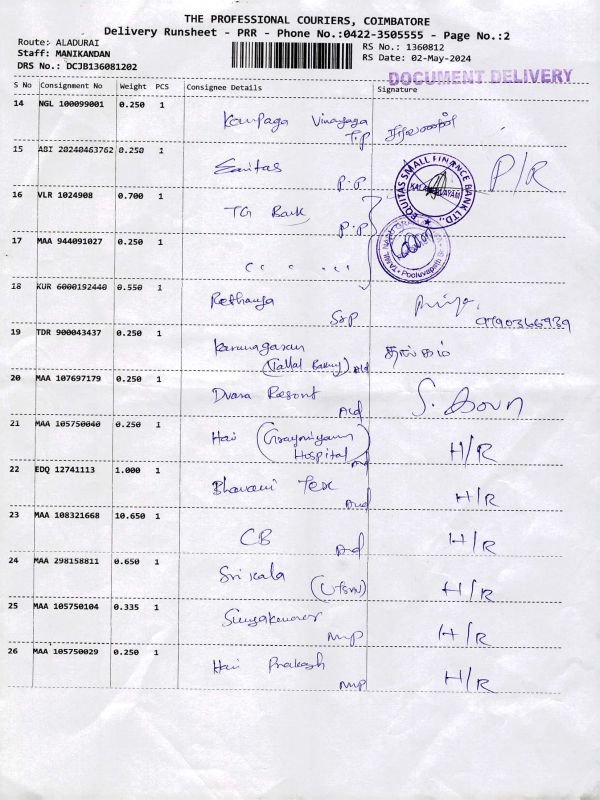 THE PROFESSIONAL COURIERS, COIMBATORE
Delivery Runsheet - PRR - Phone No.:0422-3505555 - Page No.:2
Route: ALADURAI
Staff: MANIKANDAN
DRS No.: DCJB136081202
RS No.: 1360812
RS Date: 02-May-2024
DOCUMENT DELIVERY
S No Consignment No Weight PCS Consignee Details Signature
14 NGL 100099001 0.250 1
Vinayaga
T.P
15 ABI 20240463762 0.250 1
P.P
EQUITAS SMALL FINANCE BANK LTD.,
P/R
16 VLR 1024908 0.700 1
TG Bank
P.P
17 MAA 944091027 0.250 1
" "
18 KUR 6000192440 0.550 1
Rethanya
Priya.
9790366939
19 TDR 900043437 0.250 1
தங்கம்
20 MAA 107697179 0.250 1
Dvara Resort
21 MAA 105750040 0.250 1
Hari
Hospital
H/R
22 EDQ 12741113 1.000 1
Bhavani Tex
H/R
23 MAA 108321668 10.650 1
CB
H/R
24 MAA 298158811 0.650 1
Srikala
H/R
25 MAA 105750104 0.335 1
MP
H/R
26 MAA 105750029 0.250 1
Hari Prakash
MP
H/R